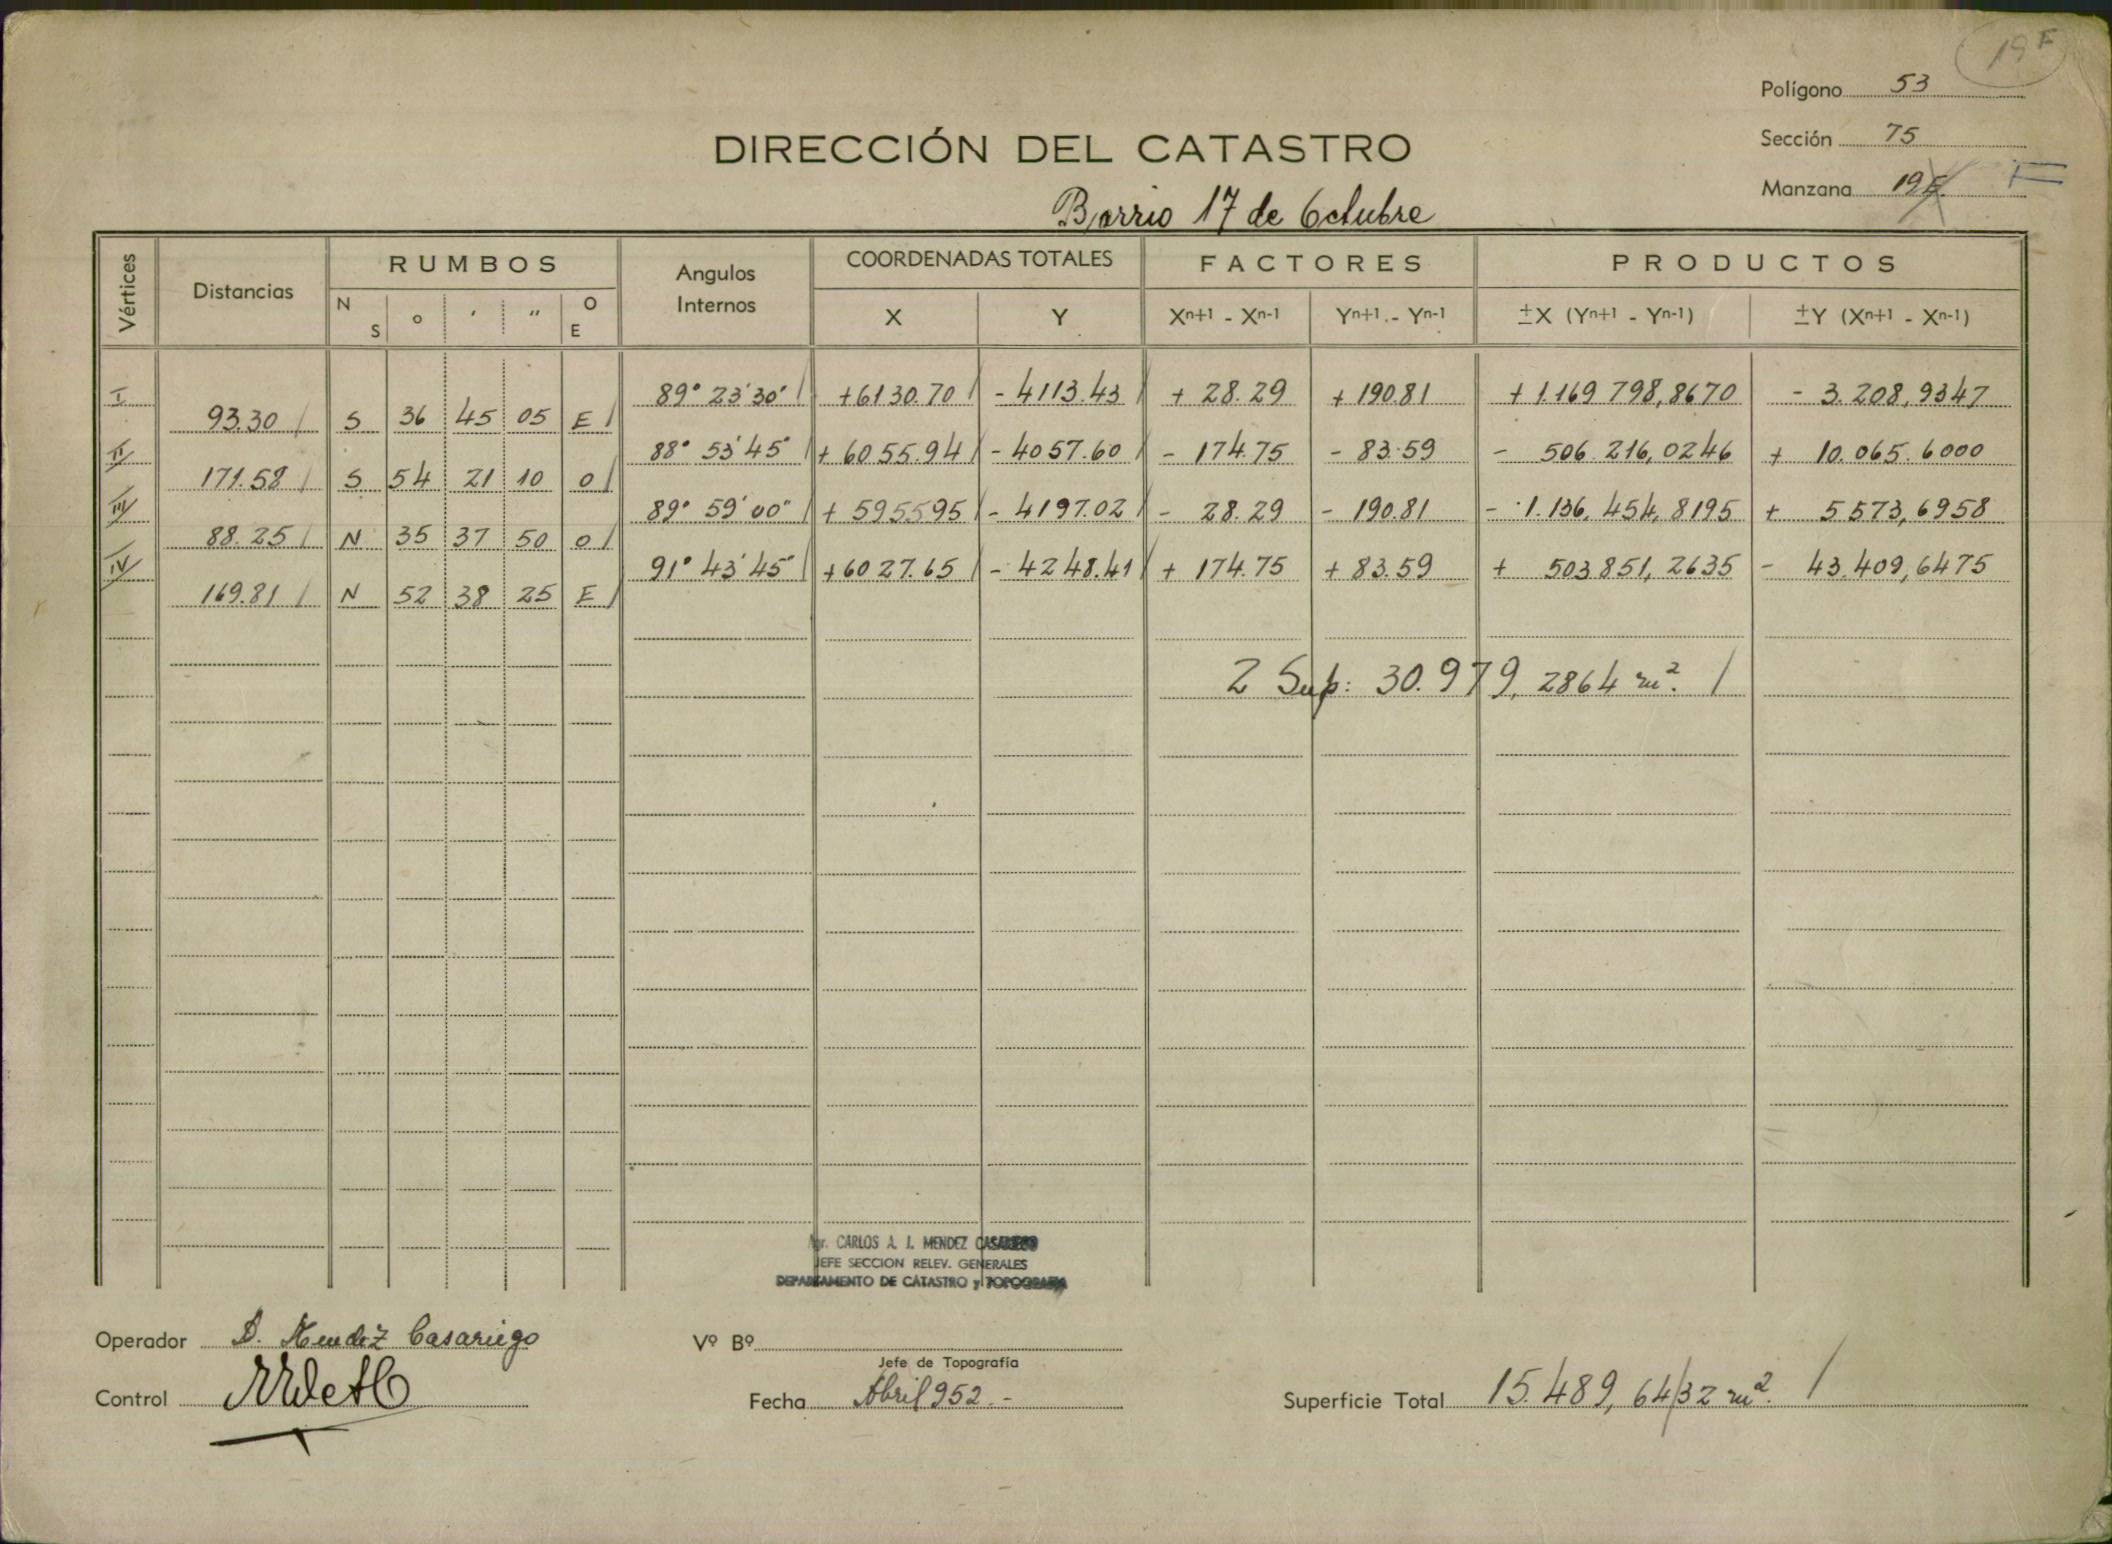 19 F
Polígono 53
Sección 75
Manzana 19 F
DIRECCIÓN DEL CATASTRO
Barrio 17 de Octubre
Vértices Distancias RUMBOS Angulos Internos COORDENADAS TOTALES FACTORES PRODUCTOS
N S ° ' " O E X Y Xn+1 - Xn-1 Yn+1 - Yn-1 ±X (Yn+1 - Yn-1) ±Y (Xn+1 - Xn-1)
I 89° 23' 30" +6130.70 - 4113.43 + 28.29 + 190.81 + 1.169 798,8670 - 3.208,9347
93.30 S 36 45 05 E
II 88° 53' 45" + 6055.94 - 4057.60 - 174.75 - 83.59 - 506.216,0246 + 10.065.6000
171.58 S 54 21 10 O
III 89° 59' 00" + 5955.95 - 4197.02 - 28.29 - 190.81 - 1.136.454,8195 + 5573,6958
88.25 N 35 37 50 O
IV 91° 43' 45" +6027.65 - 4248.41 + 174.75 + 83.59 + 503851,2635 - 43.409,6475
169.81 N 52 38 25 E
2 Sup: 30.979,2864 m².
Agr. CARLOS A. I. MENDEZ CASARIEGO
JEFE SECCION RELEV. GENERALES
DEPARTAMENTO DE CATASTRO y TOPOGRAFIA
Operador D. Mendez Casariego
Vº Bº
Jefe de Topografía
Control
Fecha Abril 952.-
Superficie Total 15.489,6432 m².